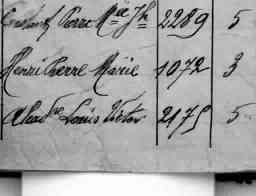 Constant Pierre Mie Jh 2289 5
Henri Pierre Marie 1072 3
Louis Victor 2175 5